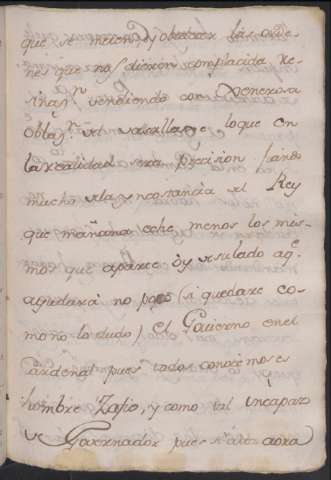 que se meien, y obedecer las orde-
nes que nos dieron complacida Re-
signan vendiendo con generosa
oblaz.n el vasallage lo que en
la realidad era precision fiando
mucho de la yncostancia del Rey
que mañana eche, menos los mis-
mos que aparece oy
a quedará no poco (si quedare co-
mo no lo dudo) El Govierno en el
Cardenal pues todos conozemos es
hombre Zafio, y como tal incapaz
de Governador pues aora